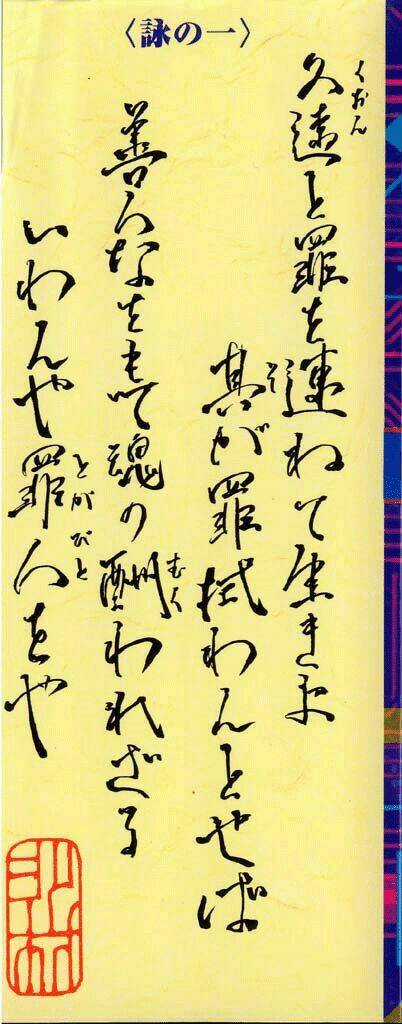 〈詠の一〉
久遠と罪を連ねて生きよ
くおん
其が罪拭わんとせば
そ
善人なをもて魂の酬われざる
むく
いわんや罪人をや
とがびと